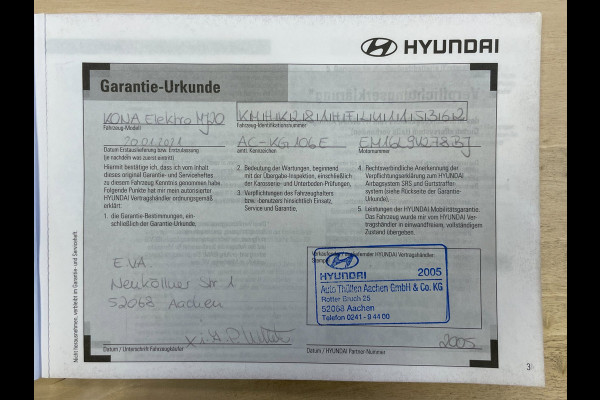 HYUNDAI
Garantie-Urkunde
KONA Elektro MJ20
Fahrzeug-Modell
Fahrzeug-Identifikationsnummer
20.01.2021
AC-KG 106E
Datum Erstauslieferung bzw. Erstzulassung
(je nachdem was zuerst eintritt)
amtl. Kennzeichen
Motornummer
Hiermit bestätige ich, dass ich vom Inhalt
dieses original Garantie- und Serviceheftes
zu diesem Fahrzeug Kenntnis genommen habe.
Folgende Punkte hat mir mein autorisierter
HYUNDAI Vertragshändler ordnungsgemäß
erklärt:
1. die Garantie-Bestimmungen, ein-
schließlich der Garantie-Urkunde,
2. Bedeutung der Wartungen, beginnend
mit der Übergabe-Inspektion, einschließlich
der Karosserie- und Unterboden-Prüfungen,
3. Verpflichtungen des Fahrzeughalters
bzw. -benutzers hinsichtlich Einsatz,
Service und Garantie,
4. Rechtsverbindliche Anerkennung der
Verpflichtungserklärung zum HYUNDAI
Airbagsystem SRS und Gurtstraffer-
system (siehe Rückseite der Garantie-
Urkunde).
5. Leistungen der HYUNDAI Mobilitätsgarantie.
Das Fahrzeug wurde mir vom HYUNDAI Ver-
tragshändler in einwandfreiem, vollständigem
Zustand übergeben.
E.VA
Neuköllner Str 1
52068 Aachen
HYUNDAI Vertragshändler
HYUNDAI 2005
Auto Thüllen Aachen GmbH & Co. KG
Rotter Bruch 25
52068 Aachen
Telefon 0241 - 9 44 00
2005
Datum / Unterschrift Fahrzeugkäufer
Datum / HYUNDAI Partner Nummer
Nicht herausnehmen, verbleibt im Garantie- und Serviceheft
3